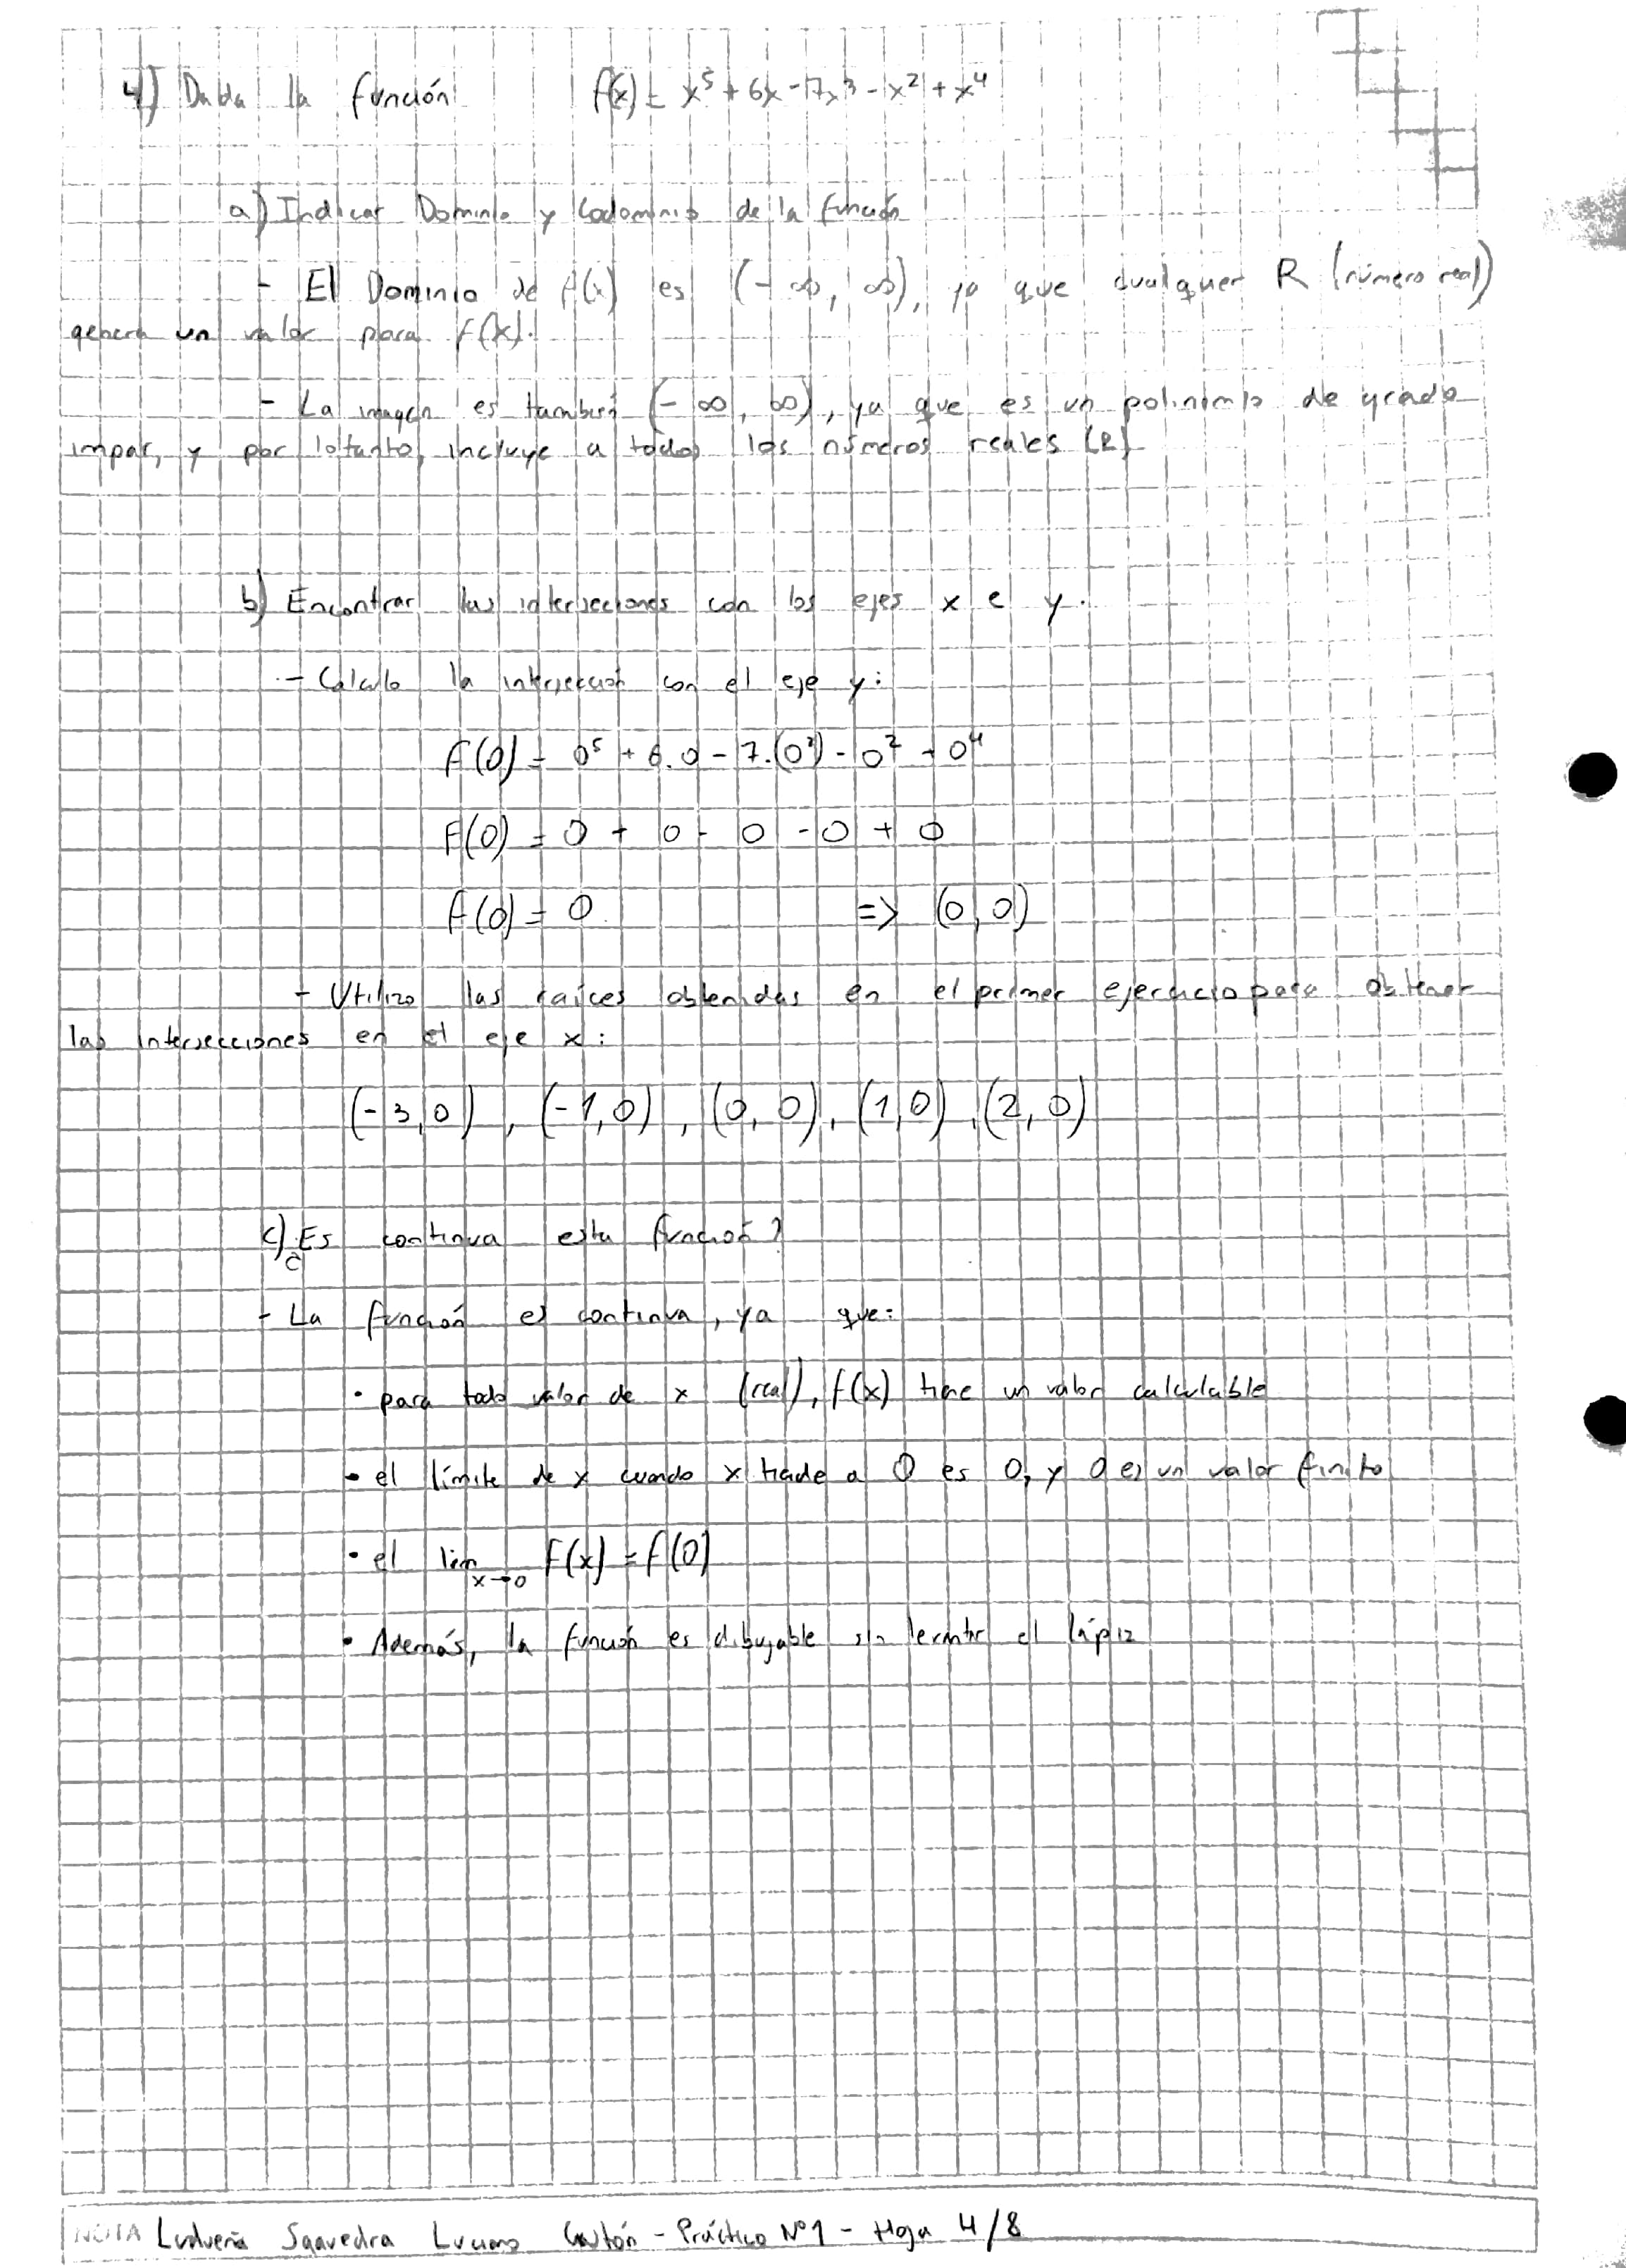 4) Dada la función f(x) = x⁵ + 6x - 7x³ - x² + x⁴
a) Indicar Dominio y Codominio de la función
- El Dominio de f(x) es (-∞, ∞), ya que cualquier R (número real)
genera un valor para f(x).
- La imagen es también (-∞, ∞), ya que es un polinomio de grado
impar, y por lo tanto, incluye a todos los números reales (R)
b) Encontrar las intersecciones con los ejes x e y.
- Calculo la intersección con el eje y:
f(0) = 0⁵ + 6.0 - 7.(0³) - 0² + 0⁴
F(0) = 0 + 0 - 0 - 0 + 0
f(0) = 0 => (0,0)
- Utilizo las raíces obtenidas en el primer ejercicio para obtener
las intersecciones en el eje x:
(-3,0), (-1,0), (0,0), (1,0), (2,0)
c) ¿Es continua esta función?
- La función es continua, ya que:
• para todo valor de x (real), f(x) tiene un valor calculable
• el límite de x cuando x tiende a 0 es 0, y 0 es un valor finito
• el lim x→0 F(x) = f(0)
• Además, la función es dibujable sin levantar el lápiz
NOTA Ludueña Saavedra Luciano Gastón - Práctico Nº1 - Hoja 4/8